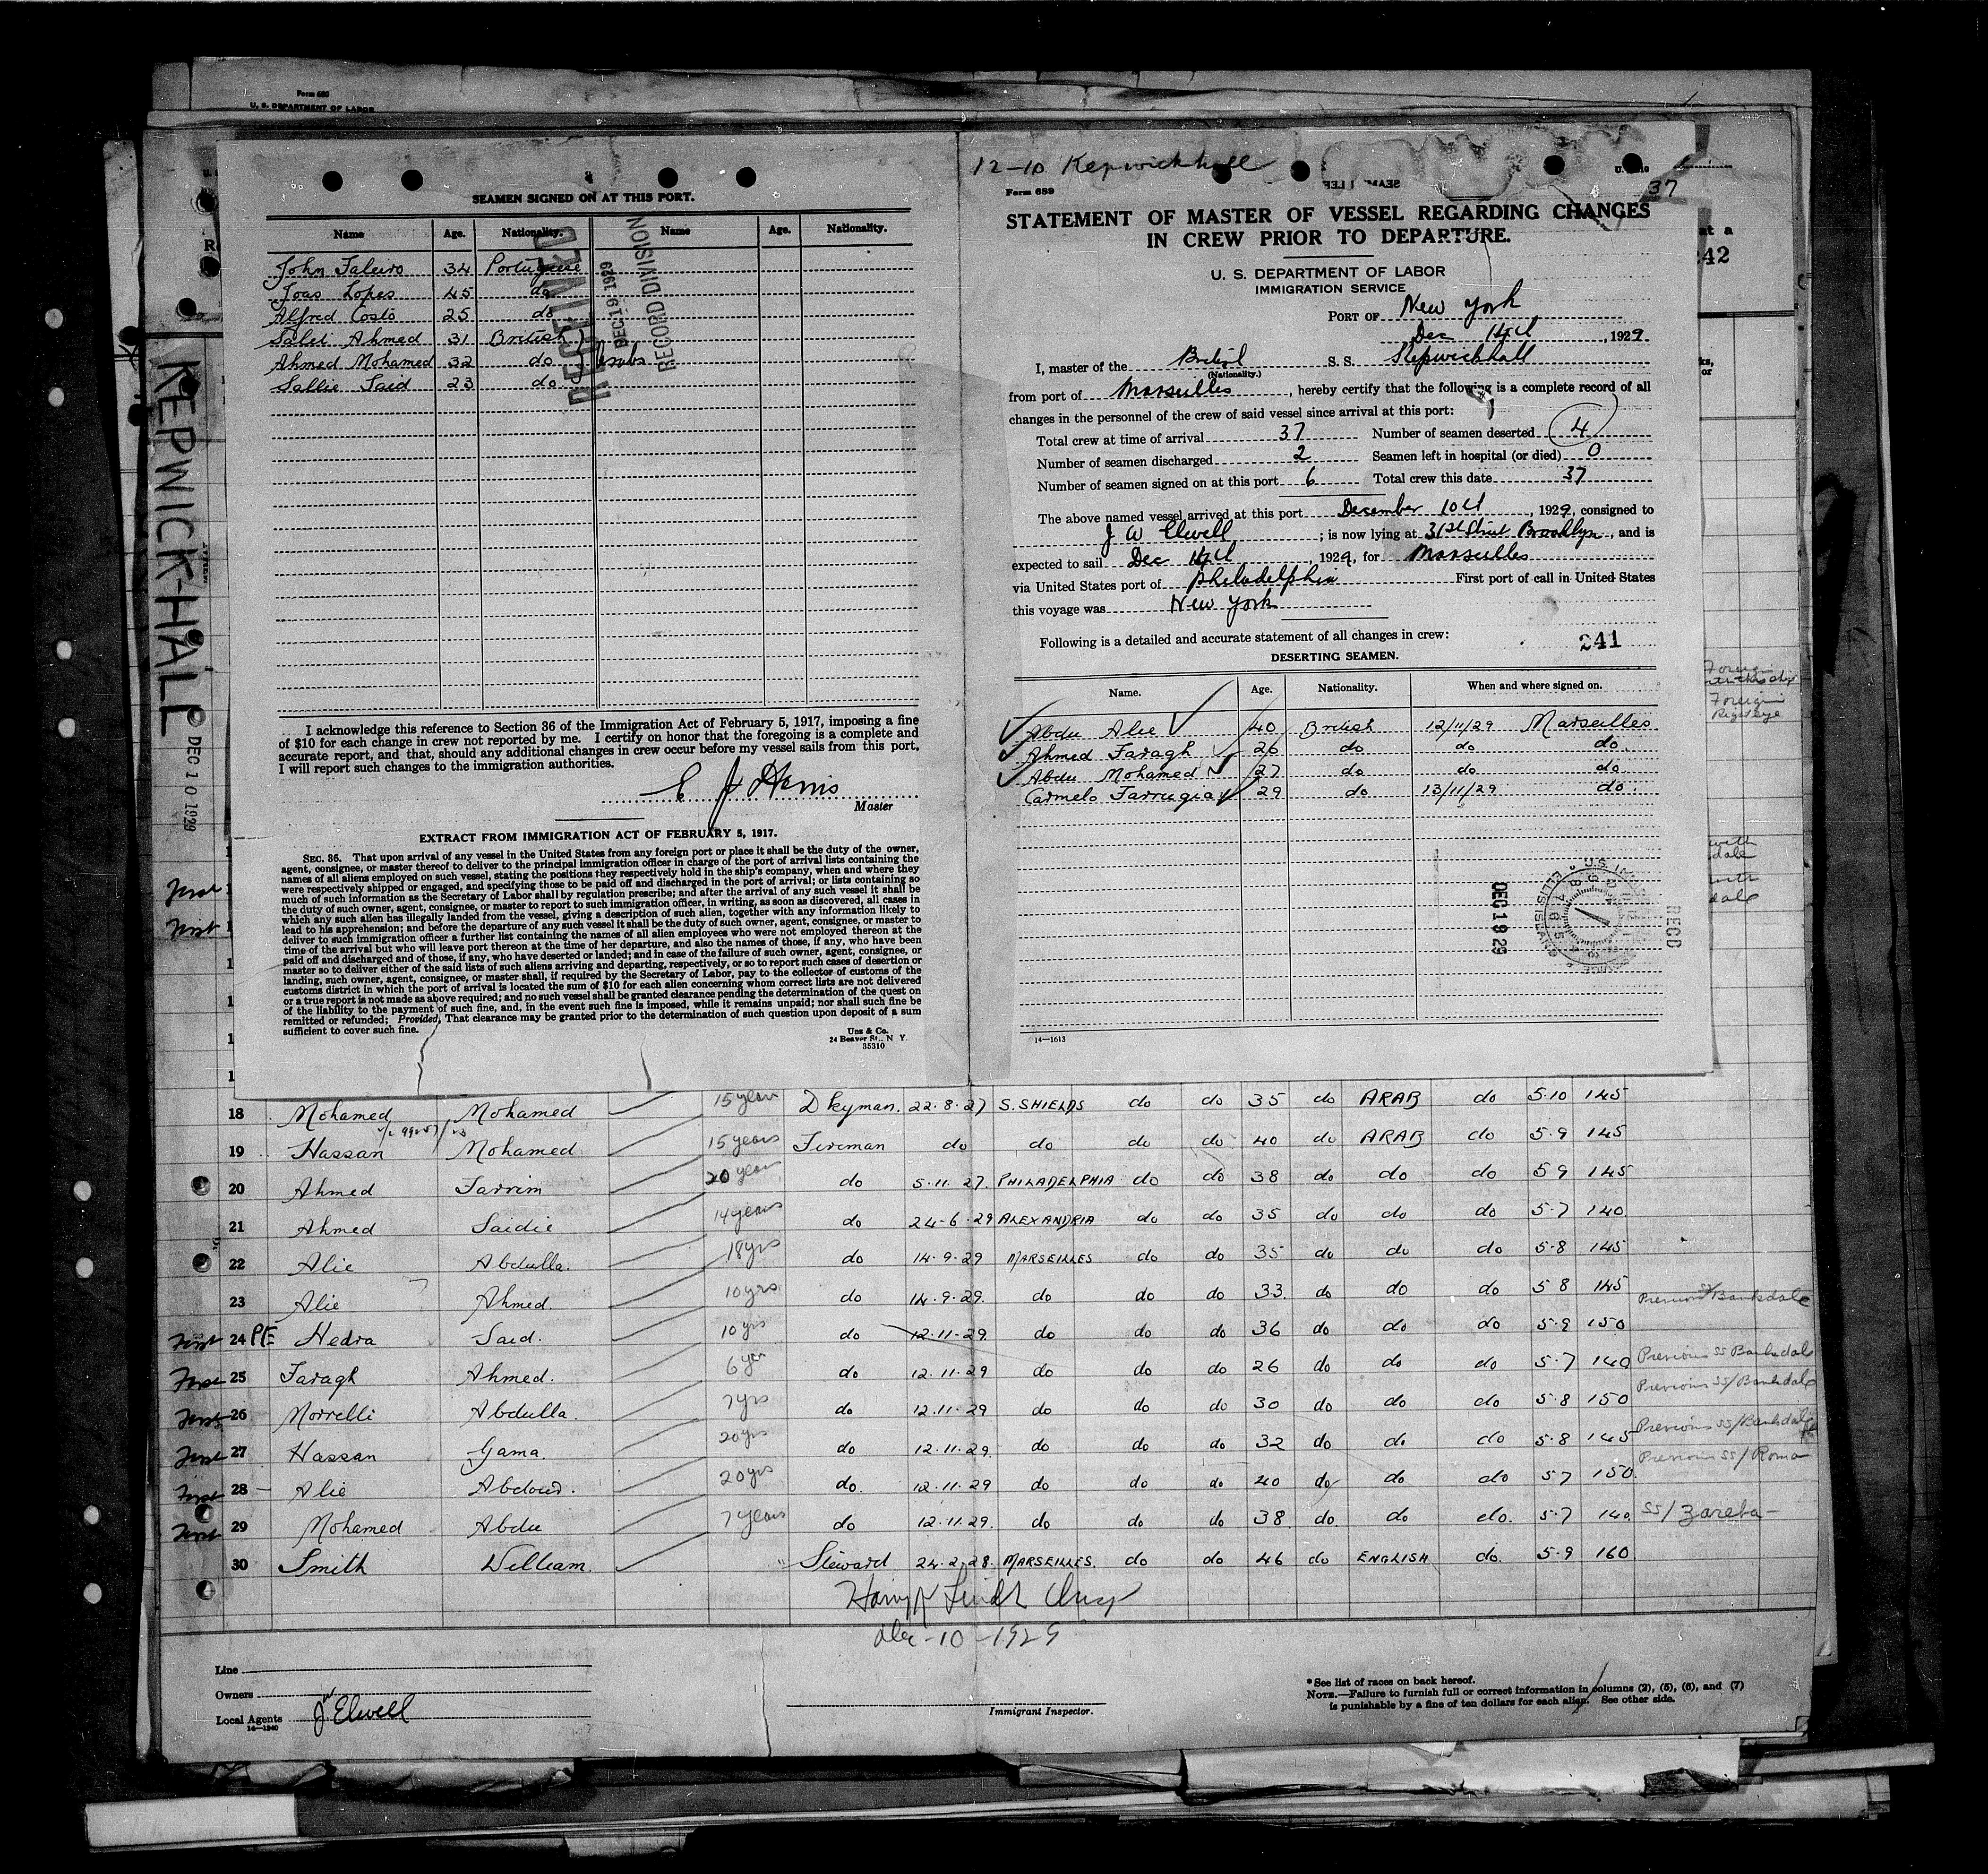 Form 680
U. S. DEPARTMENT OF LABOR
KEPWICK-HALL
DEC 10 1929
SEAMEN SIGNED ON AT THIS PORT.
Name Age. Nationality. Name Age. Nationality.
John Faleiro 34 Portuguese
Joas Lopes 45 do
Alfred Costo 25 do
Saleh Ahmed 31 British
Ahmed Mohamed 32 do Arabs
Sallie Said 23 do
RECEIVED
DEC 19 1929
RECORD DIVISION
I acknowledge this reference to Section 36 of the Immigration Act of February 5, 1917, imposing a fine
of $10 for each change in crew not reported by me. I certify on honor that the foregoing is a complete and
accurate report, and that, should any additional changes in crew occur before my vessel sails from this port,
I will report such changes to the immigration authorities.
Master
EXTRACT FROM IMMIGRATION ACT OF FEBRUARY 5, 1917.
SEC. 36. That upon arrival of any vessel in the United States from any foreign port or place it shall be the duty of the owner,
agent, consignee, or master thereof to deliver to the principal immigration officer in charge of the port of arrival lists containing the
names of all aliens employed on such vessel, stating the positions they respectively hold in the ship's company, when and where they
were respectively shipped or engaged, and specifying those to be paid off and discharged in the port of arrival; or lists containing so
much of such information as the Secretary of Labor shall by regulation prescribe; and after the arrival of any such vessel it shall be
the duty of such owner, agent, consignee, or master to report to such immigration officer, in writing, as soon as discovered, all cases in
which any such alien has illegally landed from the vessel, giving a description of such alien, together with any information likely to
lead to his apprehension; and before the departure of any such vessel it shall be the duty of such owner, agent, consignee, or master to
deliver to such immigration officer a further list containing the names of all alien employees who were not employed thereon at the
time of the arrival but who will leave port thereon at the time of her departure, and also the names of those, if any, who have been
paid off and discharged and of those, if any, who have deserted or landed; and in case of the failure of such owner, agent, consignee, or
master so to deliver either of the said lists of such aliens arriving and departing, respectively, or so to report such cases of desertion or
landing, such owner, agent, consignee, or master shall, if required by the Secretary of Labor, pay to the collector of customs of the
customs district in which the port of arrival is located the sum of $10 for each alien concerning whom correct lists are not delivered
or a true report is not made as above required; and no such vessel shall be granted clearance pending the determination of the quest on
of the liability to the payment of such fine, and, in the event such fine is imposed, while it remains unpaid; nor shall such fine be
remitted or refunded; Provided, That clearance may be granted prior to the determination of such question upon deposit of a sum
sufficient to cover such fine.
Unz & Co.
24 Beaver St., N Y.
35310
12-10 Kepwickhall
37
Form 689
STATEMENT OF MASTER OF VESSEL REGARDING CHANGES
IN CREW PRIOR TO DEPARTURE.
U. S. DEPARTMENT OF LABOR
IMMIGRATION SERVICE
PORT OF New York
Dec 14th, 1929
I, master of the British S. S. Kepwickhall
(Nationality.)
from port of Marseilles, hereby certify that the following is a complete record of all
changes in the personnel of the crew of said vessel since arrival at this port:
Total crew at time of arrival 37 Number of seamen deserted 4
Number of seamen discharged 2 Seamen left in hospital (or died) 0
Number of seamen signed on at this port 6 Total crew this date 37
The above named vessel arrived at this port December 10th, 1929, consigned to
J W Elwell; is now lying at 31st Street Brooklyn, and is
expected to sail Dec 14th, 1929, for Marseilles
via United States port of Philadelphia First port of call in United States
this voyage was New York
Following is a detailed and accurate statement of all changes in crew:
241
DESERTING SEAMEN.
Name. Age. Nationality. When and where signed on.
Abdu Alie 40 British 12/11/29 Marseilles
Ahmed Faragh 26 do do do.
Abdu Mohamed 27 do do do.
Carmelo Farrugia 29 do 13/11/29 do.
DEC 19 29
RECD
ELLIS ISLAND
14—1613
18 Mohamed Mohamed 15 years Dkyman. 22.8.27 S. SHIELDS do do 35 do ARAB do 5.10 145
19 Hassan Mohamed 15 years Fireman do do do do 40 do ARAB do 5.9 145
20 Ahmed Farrim 20 years do 5.11.27. PHILADELPHIA do do 38 do do do 5 9 145
21 Ahmed Saidie 14 years do 24-6-29 ALEXANDRIA do do 35 do do do 5-7 140
22 Alie Abdulla. 18 yrs do 14.9.29 MARSEILLES do do 35 do do do 5.8 145
23 Alie Ahmed. 10 yrs do 14.9.29. do do do 33. do do do 5 8 145
First 24 P/E Hedra Said. 10 yrs do 12.11.29. do do do 36 do do do 5.9 150 Previous SS/Banksdale
First 25 Faragh Ahmed. 6 yrs do 12.11.29 do do do 26 do do do 5.7 140 Previous SS Banksdale
First 26 Morrelli Abdulla. 7 yrs do 12.11.29 do do do 30 do do do 5.8 150 Previous SS/Banksdale
First 27 Hassan Gama. 20 yrs do 12.11.29. do do do 32 do do do 5.8 145 Previous SS/Banksdale
First 28 Alie Abdoud. 20 yrs do. 12.11.29 do do do 40 do do do 5 7 150. Previous SS/Roma
First 29 Mohamed Abdu 7 years do 12.11.29. do do do 38. do. do do. 5.7 140. SS/Zareba
30 Smith William. Steward 24.2.28. MARSEILLES. do do 46 do ENGLISH do. 5.9 160
Dec-10-1929
Line
Owners
Local Agents J W Elwell
14—1240
Immigrant Inspector.
*See list of races on back hereof.
NOTE.—Failure to furnish full or correct information in columns (2), (5), (6), and (7)
is punishable by a fine of ten dollars for each alien. See other side.